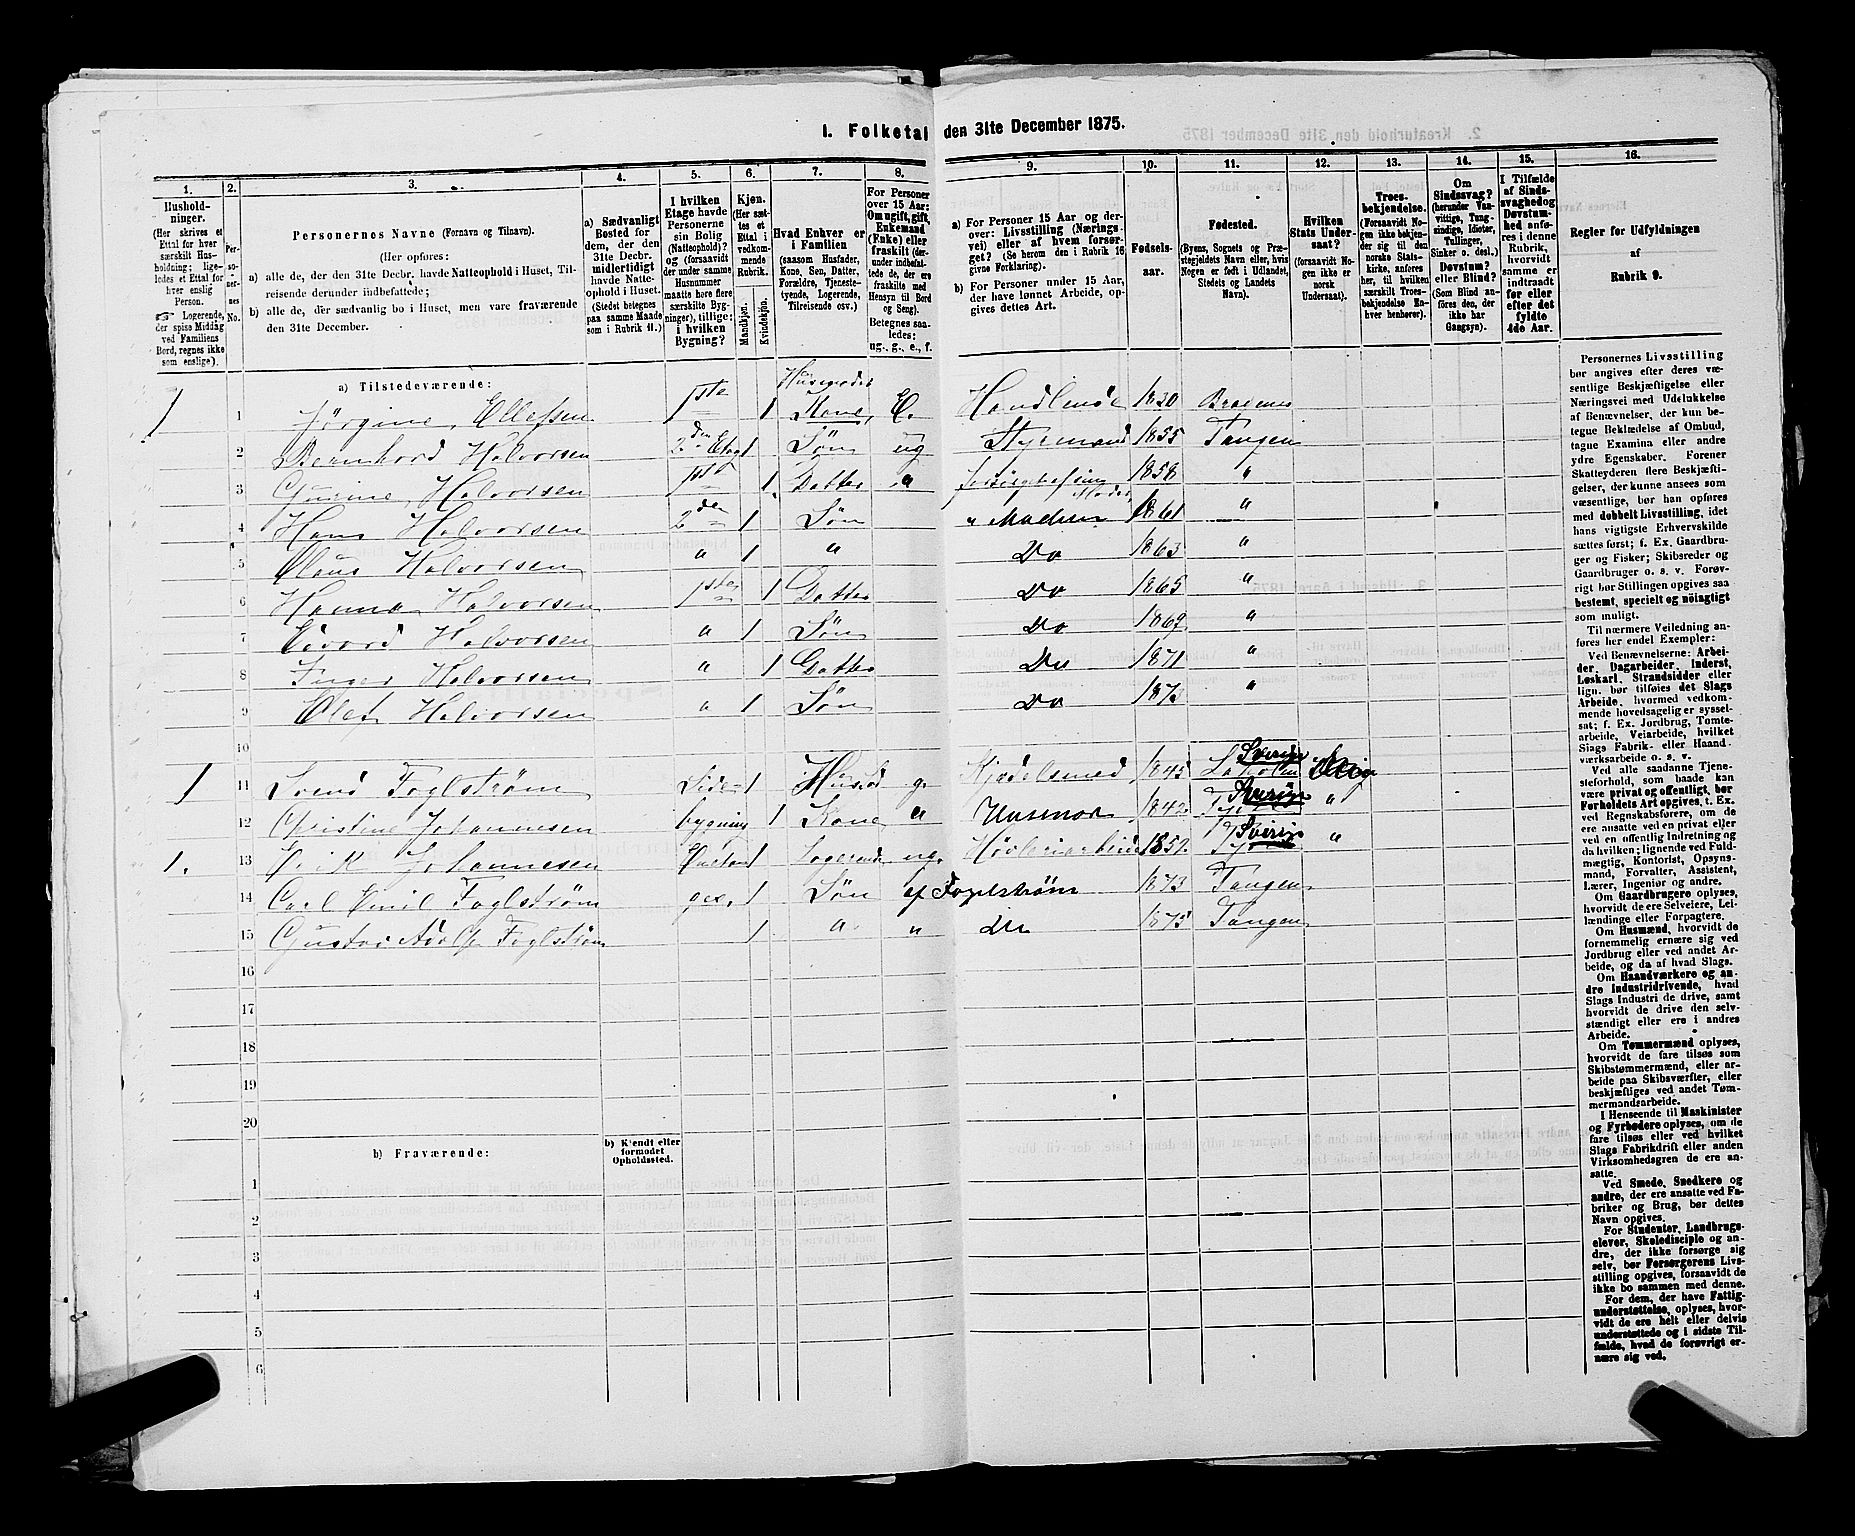 1. Folketal den 31te December 1875.
1. 2. 3. 4. 5. 6. 7. 8. 9. 10. 11. 12. 13. 14. 15. 16.
Husholdninger.
(Her skrives et Ettal for hver særskilt Husholdning; ligeledes et Ettal for hver enslig Person.
☞ Logerende, der spise Middag ved Familiens Bord, regnes ikke som enslige).
Personernes No.
Personernes Navne (Fornavn og Tilnavn).
(Her opføres:
a) alle de, der den 31te Decbr. havde Natteophold i Huset, Tilreisende derunder indbefattede;
b) alle de, der sædvanlig bo i Huset, men vare fraværende den 31te December.
a) Sædvanligt Bosted for dem, der den 31te Decbr. midlertidigt havde Natteophold i Huset. (Stedet betegnes paa samme Maade som i Rubrik 11.)
I hvilken Etage havde Personerne sin Bolig (Natteophold)? og (forsaavidt der under samme Husnummer maatte høre flere særskilte Bygninger), tillige: i hvilken Bygning?
Kjøn. (Her sættes et Ettal i vedkommende Rubrik.
Mandkjøn. Kvindekjøn.
Hvad Enhver er i Familien
(saasom Husfader, Kone, Søn, Datter, Forældre, Tjenestetyende, Logerende, Tilreisende osv.)
For Personer over 15 Aar: Om ugift, gift, Enkemand (Enke) eller fraskilt (derunder indbefattede de, der ere fraskilte med Hensyn til Bord og Seng). Betegnes saaledes: ug., g., e., f.
a) For Personer 15 Aar og derover: Livsstilling (Næringsvei) eller af hvem forsørget? (Se herom den i Rubrik 16 givne Forklaring).
b) For Personer under 15 Aar, der have lønnet Arbeide, opgives dettes Art.
Fødselsaar.
Fødested.
(Byens, Sognets og Præstegjeldets Navn eller, hvis Nogen er født i Udlandet, Stedets og Landets Navn).
Hvilken Stats Undersaat? (forsaavidt Nogen ikke er norsk Undersaat).
Troesbekjendelse. (Forsaavidt Nogen ikke bekjender sig til den norske Statskirke, anføres her, til hvilken særskilt Troesbekjendelse Enhver henhører).
Om Sindssvag? (herunder Vanvittige, Tungsindige, Idioter, Tullinger, Sinker o. desl.) Døvstum? eller Blind? (Som Blind anføres den, der ikke har Gangsyn).
I Tilfælde af Sindssvaghed og Døvstumhed anføres i denne Rubrik, hvorvidt samme er indtraadt før eller efter det fyldte 4de Aar.
Regler for Udfyldningen af Rubrik 9.
a) Tilstedeværende:
1 1 Jørgine Ellefsen 1ste 1 Husmoder Kone E. 1830 Bragernes
2 Bernhard Halvorsen 2den Etag 1 Søn ug Styrmand 1855 Tangen
3 Gurine Halvorsen 1ste 1 Datter " 1858 "
4 Hans Halvorsen 2den 1 Søn 1861 "
5 Claus Halvorsen " 1 " Do 1863 "
6 Hanna Halvorsen 1ste 1 Datter Do 1865 "
7 Edvard Halvorsen " 1 Søn Do 1869 "
8 Inger Halvorsen " 1 Datter Do 1871 "
9 Olaf Halvorsen " 1 Søn Do 1873 "
10
1 11 Svend Foglstrøm Side- 1 g. Kjedelsmed 1845 Sverige
12 Christine Johannesen bygning 1 Kone " 1842 Sverige "
1. 13 Johannesen 1 Logerende ug. 1852 Sverige "
14 Carl Emil Foglstrøm 1 Søn af Fogelstrøm 1873 Tangen
15 Gustav Adolf Foglstrøm 1 " " Do 1875 Tangen
16
17
18
19
20
b) Fraværende: b) Kjendt eller formodet Opholdssted.
1
2
3
4
5
6
Personernes Livsstilling
bør angives efter deres væ-
sentlige Beskjæftigelse eller
Næringsvei med Udelukkelse
af Benævnelser, der kun be-
tegne Beklædelse af Ombud,
tagne Examina eller andre
ydre Egenskaber. Forener
Skatteyderen flere Beskjæfti-
gelser, der kunne ansees som
væsentlige, bør han opføres
med dobbelt Livsstilling, idet
hans vigtigste Erhvervskilde
sættes først; f. Ex. Gaardbru-
ger og Fisker; Skibsreder og
Gaardbruger o. s. v. Forøv-
rigt bør Stillingen opgives saa
bestemt, specielt og nøiagtigt
som muligt.
Til nærmere Veiledning an-
føres her endel Exempler:
Ved Benævnelserne: Arbei-
der, Dagarbeider, Inderst,
Løskarl, Strandsidder eller
lign. bør tilføies det Slags
Arbeide, hvormed vedkom-
mende hovedsagelig er syssel-
sat; f. Ex. Jordbrug, Tomte-
arbeide, Veiarbeide, hvilket
Slags Fabrik- eller Haand-
værksarbeide o. s. v.
Ved alle saadanne Tjene-
steforhold, som baade kan
være privat og offentligt, bør
Forholdets Art opgives, t. Ex.
ved Regnskabsførere, om de
ere ansatte ved en privat eller
en offentlig Indretning og da
hvilken; lignende ved Fuld-
mægtig, Kontorist, Opsyns-
mand, Forvalter, Assistent,
Lærer, Ingeniør og andre.
Om Gaardbrugere oplyses,
hvorvidt de ere Selveiere, Lei-
lændinge eller Forpagtere.
Om Husmænd, hvorvidt de
fornemmelig ernære sig ved
Jordbrug eller ved andet Ar-
beide, og da af hvad Slags.
Om Haandværkere og an-
dre Industridrivende, hvad
Slags Industri de drive, samt
hvorvidt de drive den selv-
stændigt eller ere i andres
Arbeide.
Om Tømmermænd oplyses,
hvorvidt de fare tilsøs som
Skibstømmermænd, eller ar-
beide paa Skibsværfter, eller
beskjæftiges ved andet Tøm-
mermandsarbeide.
I Henseende til Maskinister
og Fyrbødere oplyses, om de
fare tilsøs eller ved hvilket
Slags Fabrikdrift eller anden
Virksomhedsgren de ere an-
satte.
Ved Smede, Snedkere og
andre, der ere ansatte ved Fa-
briker og Brug, bør dettes
Navn opgives.
For Studenter, Landbrugs-
elever, Skoledisciple og an-
dre, der ikke forsørge sig
selv, bør Forsørgerens Livs-
stilling opgives, forsaavidt de
ikke bo sammen med denne.
For dem, der have Fattig-
understøttelse, oplyses, hvor-
vidt de ere helt eller delvis
understøttede og i sidste Til-
fælde, hvad de forøvrigt er-
nære sig ved.